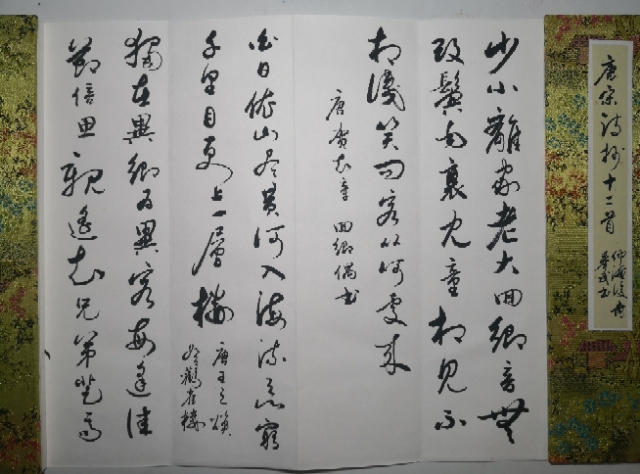 唐宋诗抄十二首
少小離家老大回鄉音無
改鬢毛衰兒童相見不
相識笑问客從何處来
唐賀知章 回鄉偶书
白日依山尽黄河入海流欲窮
千里目更上一層樓
唐王之焕
登鸛雀樓
獨在異鄉为異客每逢佳
節倍思親遥知兄弟登高